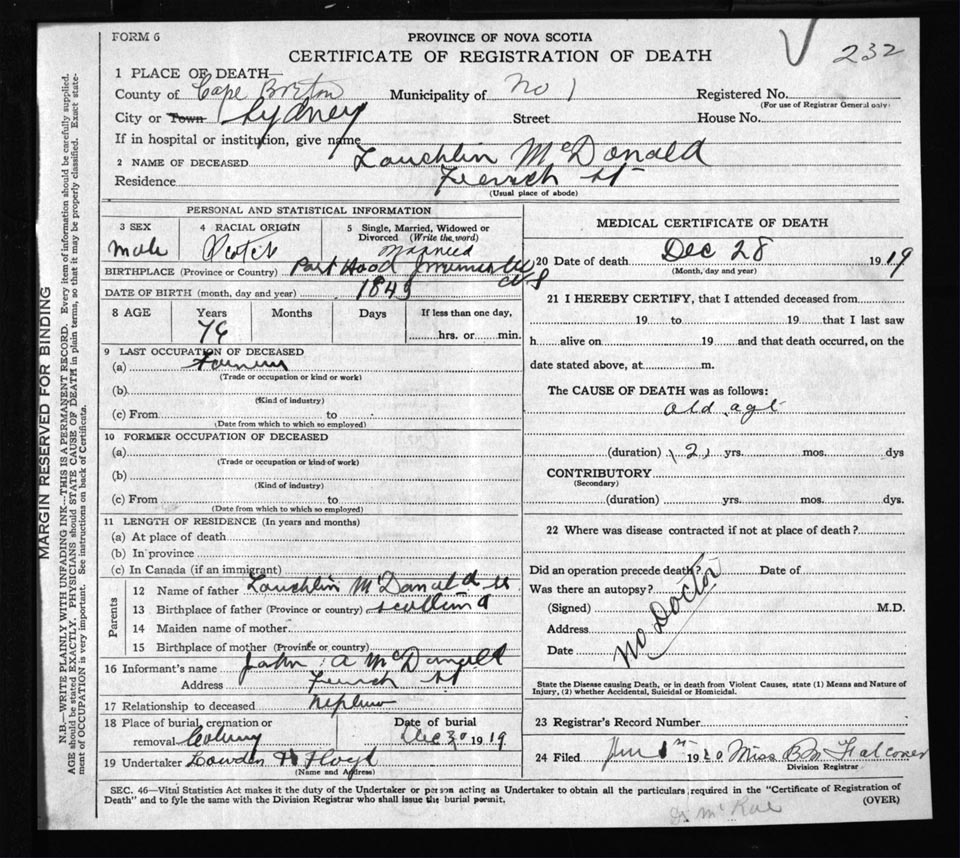 FORM 6
PROVINCE OF NOVA SCOTIA
CERTIFICATE OF REGISTRATION OF DEATH
232
1 PLACE OF DEATH—
County of Cape Breton Municipality of No 1 Registered No.
(For use of Registrar General only)
City or Town Sydney Street House No.
If in hospital or institution, give name
2 NAME OF DECEASED Lauchlin McDonald
Residence French St
(Usual place of abode)
PERSONAL AND STATISTICAL INFORMATION
3 SEX 4 RACIAL ORIGIN 5 Single, Married, Widowed or Divorced (Write the word)
Male Scotch Married
BIRTHPLACE (Province or Country) Port Hood Inverness NS
DATE OF BIRTH (month, day and year)
8 AGE Years Months Days If less than one day,
hrs. or min.
9 LAST OCCUPATION OF DECEASED
(a)
(Trade or occupation or kind or work)
(b)
(Kind of industry)
(c) From to
(Date from which to which so employed)
10 FORMER OCCUPATION OF DECEASED
(a)
(Trade or occupation or kind of work)
(b)
(Kind of industry)
(c) From to
(Date from which to which so employed)
11 LENGTH OF RESIDENCE (In years and months)
(a) At place of death
(b) In province
(c) In Canada (if an immigrant)
Parents
12 Name of father Lauchlin McDonald
13 Birthplace of father (Province or country) Scotland
14 Maiden name of mother
15 Birthplace of mother (Province or country)
16 Informant's name John A McDonald
Address French St
17 Relationship to deceased Nephew
18 Place of burial, cremation or Date of burial
removal Dec 30 1919
19 Undertaker Lowden H Floyd
(Name and Address)
MEDICAL CERTIFICATE OF DEATH
20 Date of death Dec 28 1919
(Month, day and year)
21 I HEREBY CERTIFY, that I attended deceased from
19 to 19 that I last saw
h alive on 19 and that death occurred, on the
date stated above, at m.
The CAUSE OF DEATH was as follows:
old age
(duration) 2 yrs. mos. dys
CONTRIBUTORY
(Secondary)
(duration) yrs. mos. dys.
22 Where was disease contracted if not at place of death?
Did an operation precede death? Date of
Was there an autopsy?
(Signed) M.D.
Address
Date
No Doctor
State the Disease causing Death, or in death from Violent Causes, state (1) Means and Nature of
Injury, (2) whether Accidental, Suicidal or Homicidal.
23 Registrar's Record Number
24 Filed 1920 Miss B M Falconer
Division Registrar
SEC. 46—Vital Statistics Act makes it the duty of the Undertaker or person acting as Undertaker to obtain all the particulars required in the "Certificate of Registration of
Death" and to fyle the same with the Division Registrar who shall issue the burial permit.
(OVER)
Dr McRae
MARGIN RESERVED FOR BINDING
N.B.—WRITE PLAINLY WITH UNFADING INK—THIS IS A PERMANENT RECORD. Every item of information should be carefully supplied.
AGE should be stated EXACTLY. PHYSICIANS should STATE CAUSE OF DEATH in plain terms, so that it may be properly classified. Exact state-
ment of OCCUPATION is very important. See instructions on back of Certificate.